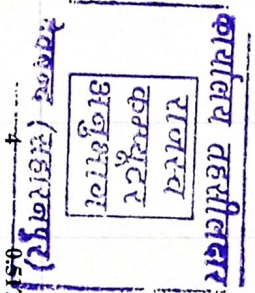 कार्यालय तहसीलदार
राजस्व
कम्प्यूटर
अनुभाग
देवबन्द (सहारनपुर)
4